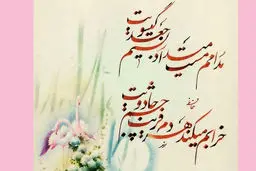 مدامم مست میدارد نسیم جعد گیسویت
خرابم میکند هر دم فریب چشم جادویت